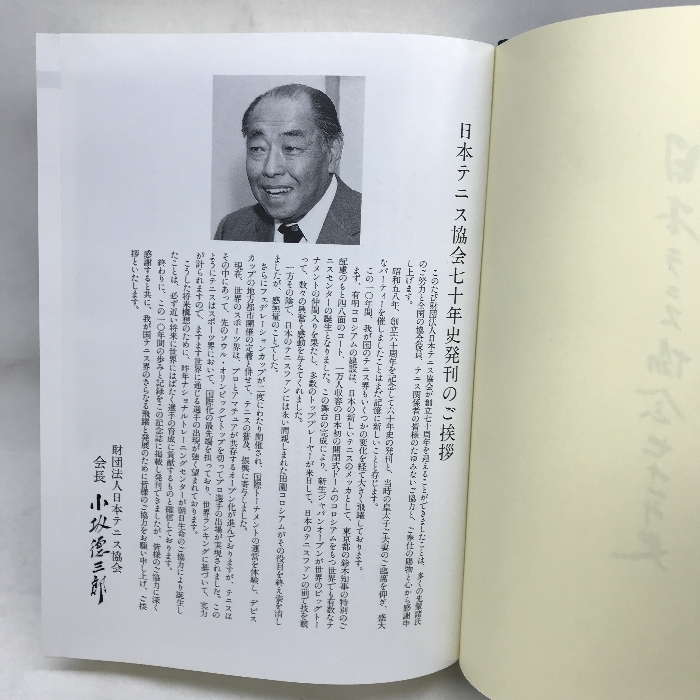 日本テニス協会七十年史発刊のご挨拶
このたび財団法人日本テニス協会が創立七十周年を迎えることができましたことは、多くの先輩諸氏
のご努力と全国の協会役員、テニス関係者の皆様のたゆみないご協力、ご奉仕の賜物と心から感謝申
し上げます。
昭和五八年、創立六十周年を記念して六十年史の発刊と、当時の皇太子ご夫妻のご臨席を仰ぎ、盛大
なパーティーを催しましたことはまだ記憶に新しいことと存じます。
この一〇年間、我が国のテニス界もいくつかの変化を経て大きく飛躍しております。
まず、有明コロシアムの建設は、日本の新しいテニスのメッカとして、東京都の鈴木知事の特別のご
配慮のもと四八面のコート、一万人収容の日本初の開閉式ドームのコロシアムをもつ世界でも有数なテ
ニスセンターの誕生となりました。この舞台の完成により、新生ジャパンオープンが世界のビッグトー
ナメントの仲間入りを果たし、多数のトッププレーヤーが来日して、日本のテニスファンの前で技を競
って、数々の興奮と感動を与えてくれました。
一方その陰で、日本のテニスファンには永い間親しまれた田園コロシアムがその役目を終え姿を消し
ましたが、感無量のことでした。
さらにフェデレーションカップが二度にわたり開催され、国際トーナメントの運営を体験し、デビス
カップの地方都市開催の定着と併せて、テニスの普及、振興に寄与しております。
現在、世界のスポーツ界は、プロとアマチュアが共存するオープン化が進んでおりますが、テニスは
その中にあって、先のソウル・オリンピックでトップを切ってプロ選手の出場が実現されました。この
ようにテニスはスポーツ界において、国際化の最先端を担っており、世界ランキングに基づいて、実力
が計られますので、ますます世界に通じる選手の出現が強く望まれております。
こうした将来構想のために、昨年ナショナルトレーニングセンターが朝日生命のご協力により誕生し
たことは、必ず近い将来に世界にはばたく選手の育成に貢献するものと確信しております。
終わりに、この一〇年間の歩みと記録をこの記念誌に掲載し発刊できましたが、皆様のご協力に深く
感謝すると共に、我が国テニス界のさらなる飛躍と発展のために皆様のご協力をお願い申し上げ、ご挨
拶といたします。
財団法人日本テニス協会
会長 小坂徳三郎